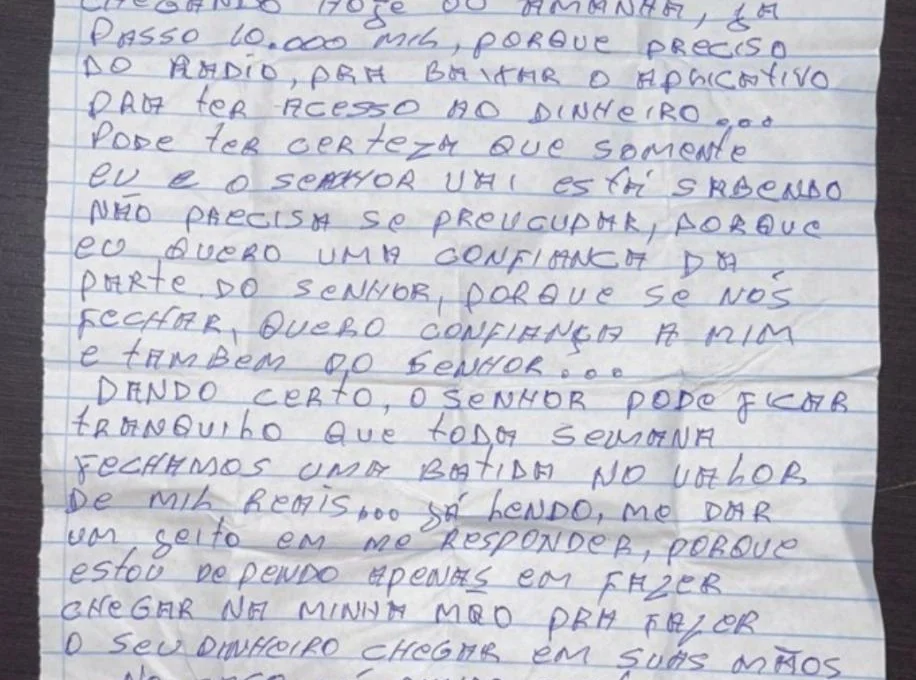 CHEGANDO HOJE OU AMANHÃ, JÁ
PASSO 10.000 MIL, PORQUE PRECISO
DO RADIO, PRA BAIXAR O APLICATIVO
PRA TER ACESSO AO DINHEIRO...
PODE TER CERTEZA QUE SOMENTE
EU E O SENHOR VAI ESTÁ SABENDO
NÃO PRECISA SE PREUCUPAR, PORQUE
EU QUERO UMA CONFIANCA DA
PARTE DO SENHOR, PORQUE SE NÓS
FECHAR, QUERO CONFIANÇA A MIM
E TAMBEM DO SENHOR...
DANDO CERTO, O SENHOR PODE FICAR
TRANQUILO QUE TODA SEMANA
FECHAMOS UMA BATIDA NO VALOR
DE MIL REAIS... JÁ LENDO, ME DAR
UM GEITO EM ME RESPONDER, PORQUE
ESTOU DEPENDO APENAS EM FAZER
CHEGAR NA MINHA MÃO PRA FAZER
O SEU DINHEIRO CHEGAR EM SUAS MÃOS